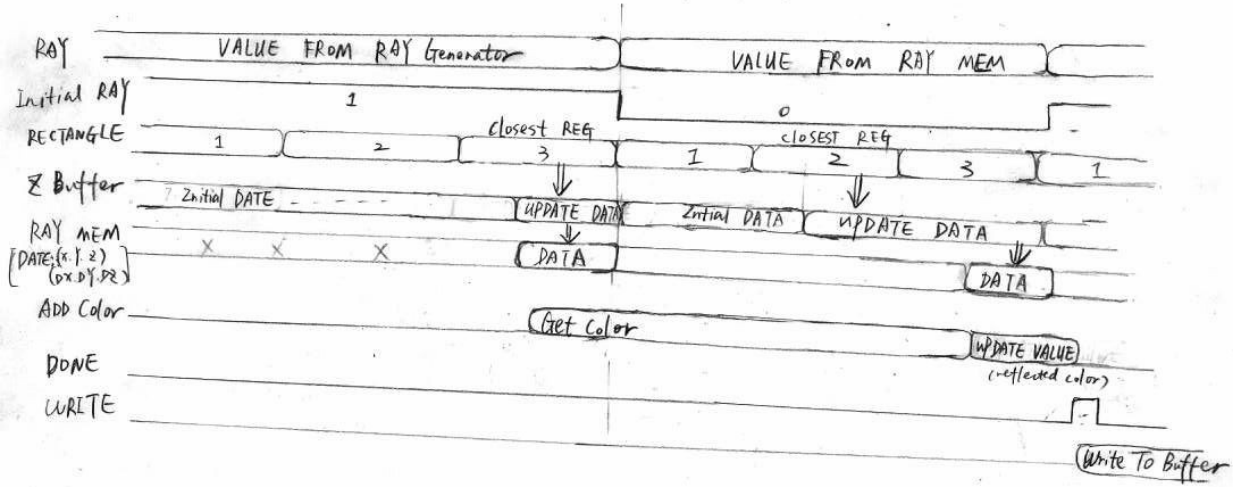 RAY VALUE FROM RAY Generator VALUE FROM RAY MEM
Initial RAY 1 0
RECTANGLE 1 2 closest REG 3 1 closest REG 2 3 1
Z Buffer Znitial DATE UPDATE DATA Zntial DATA UPDATE DATA
RAY MEM X X X DATA DATA
[DATE:(x.y.z)
(DX.DY.DZ)]
ADD Color Get Color UPDATE VALUE
(reflected color)
DONE
WRITE
Write To Buffer